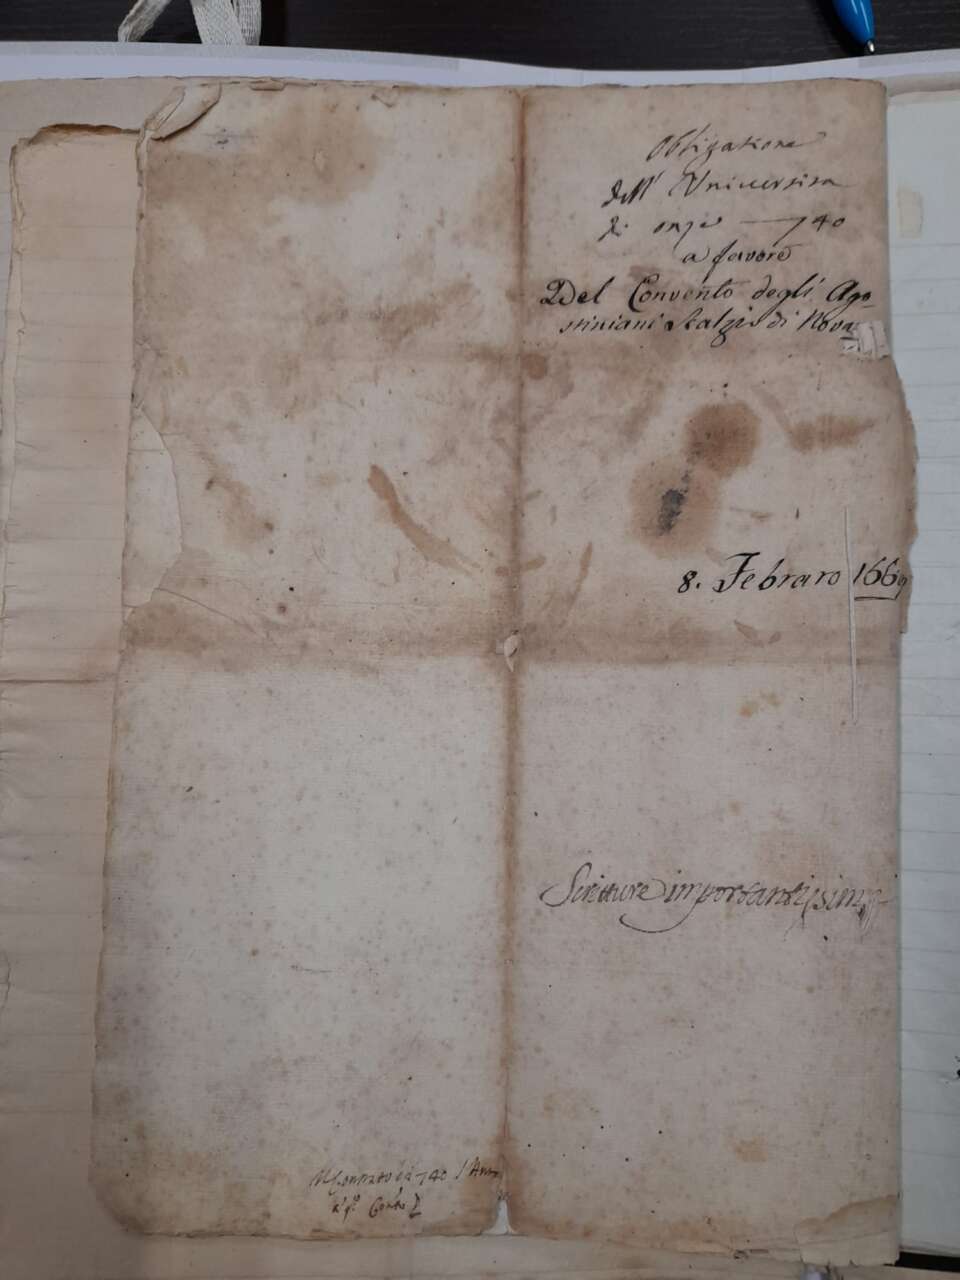 Obligatione
dell' Universita
di onze — 740
a favore
Del Convento degli Ago-
stiniani Scalzi di Nova
8. Febraro 1669
Scritture importantissime
740
Conto